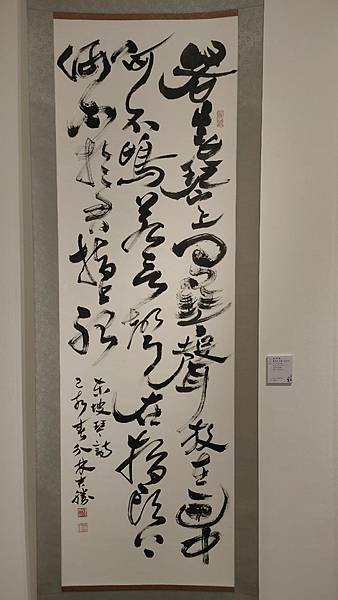 若言琴上有琴聲放在匣中
何不鳴若言聲在指頭上
何不於君指上聽
東坡琴詩
己亥春分林